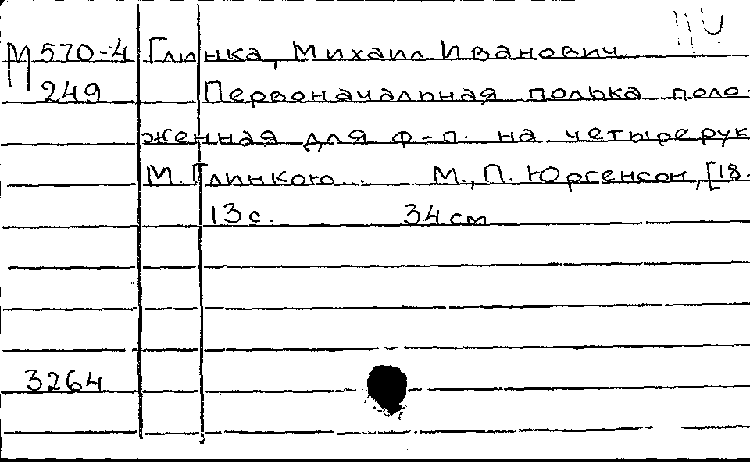 М 570-4 Глинка, Михаил Иванович
249 Первоначальная полька поло
женная для ф-п. на четыре рук
М. Глинкою... М., П. Юргенсон, [18.
13 с. 34 см
3264